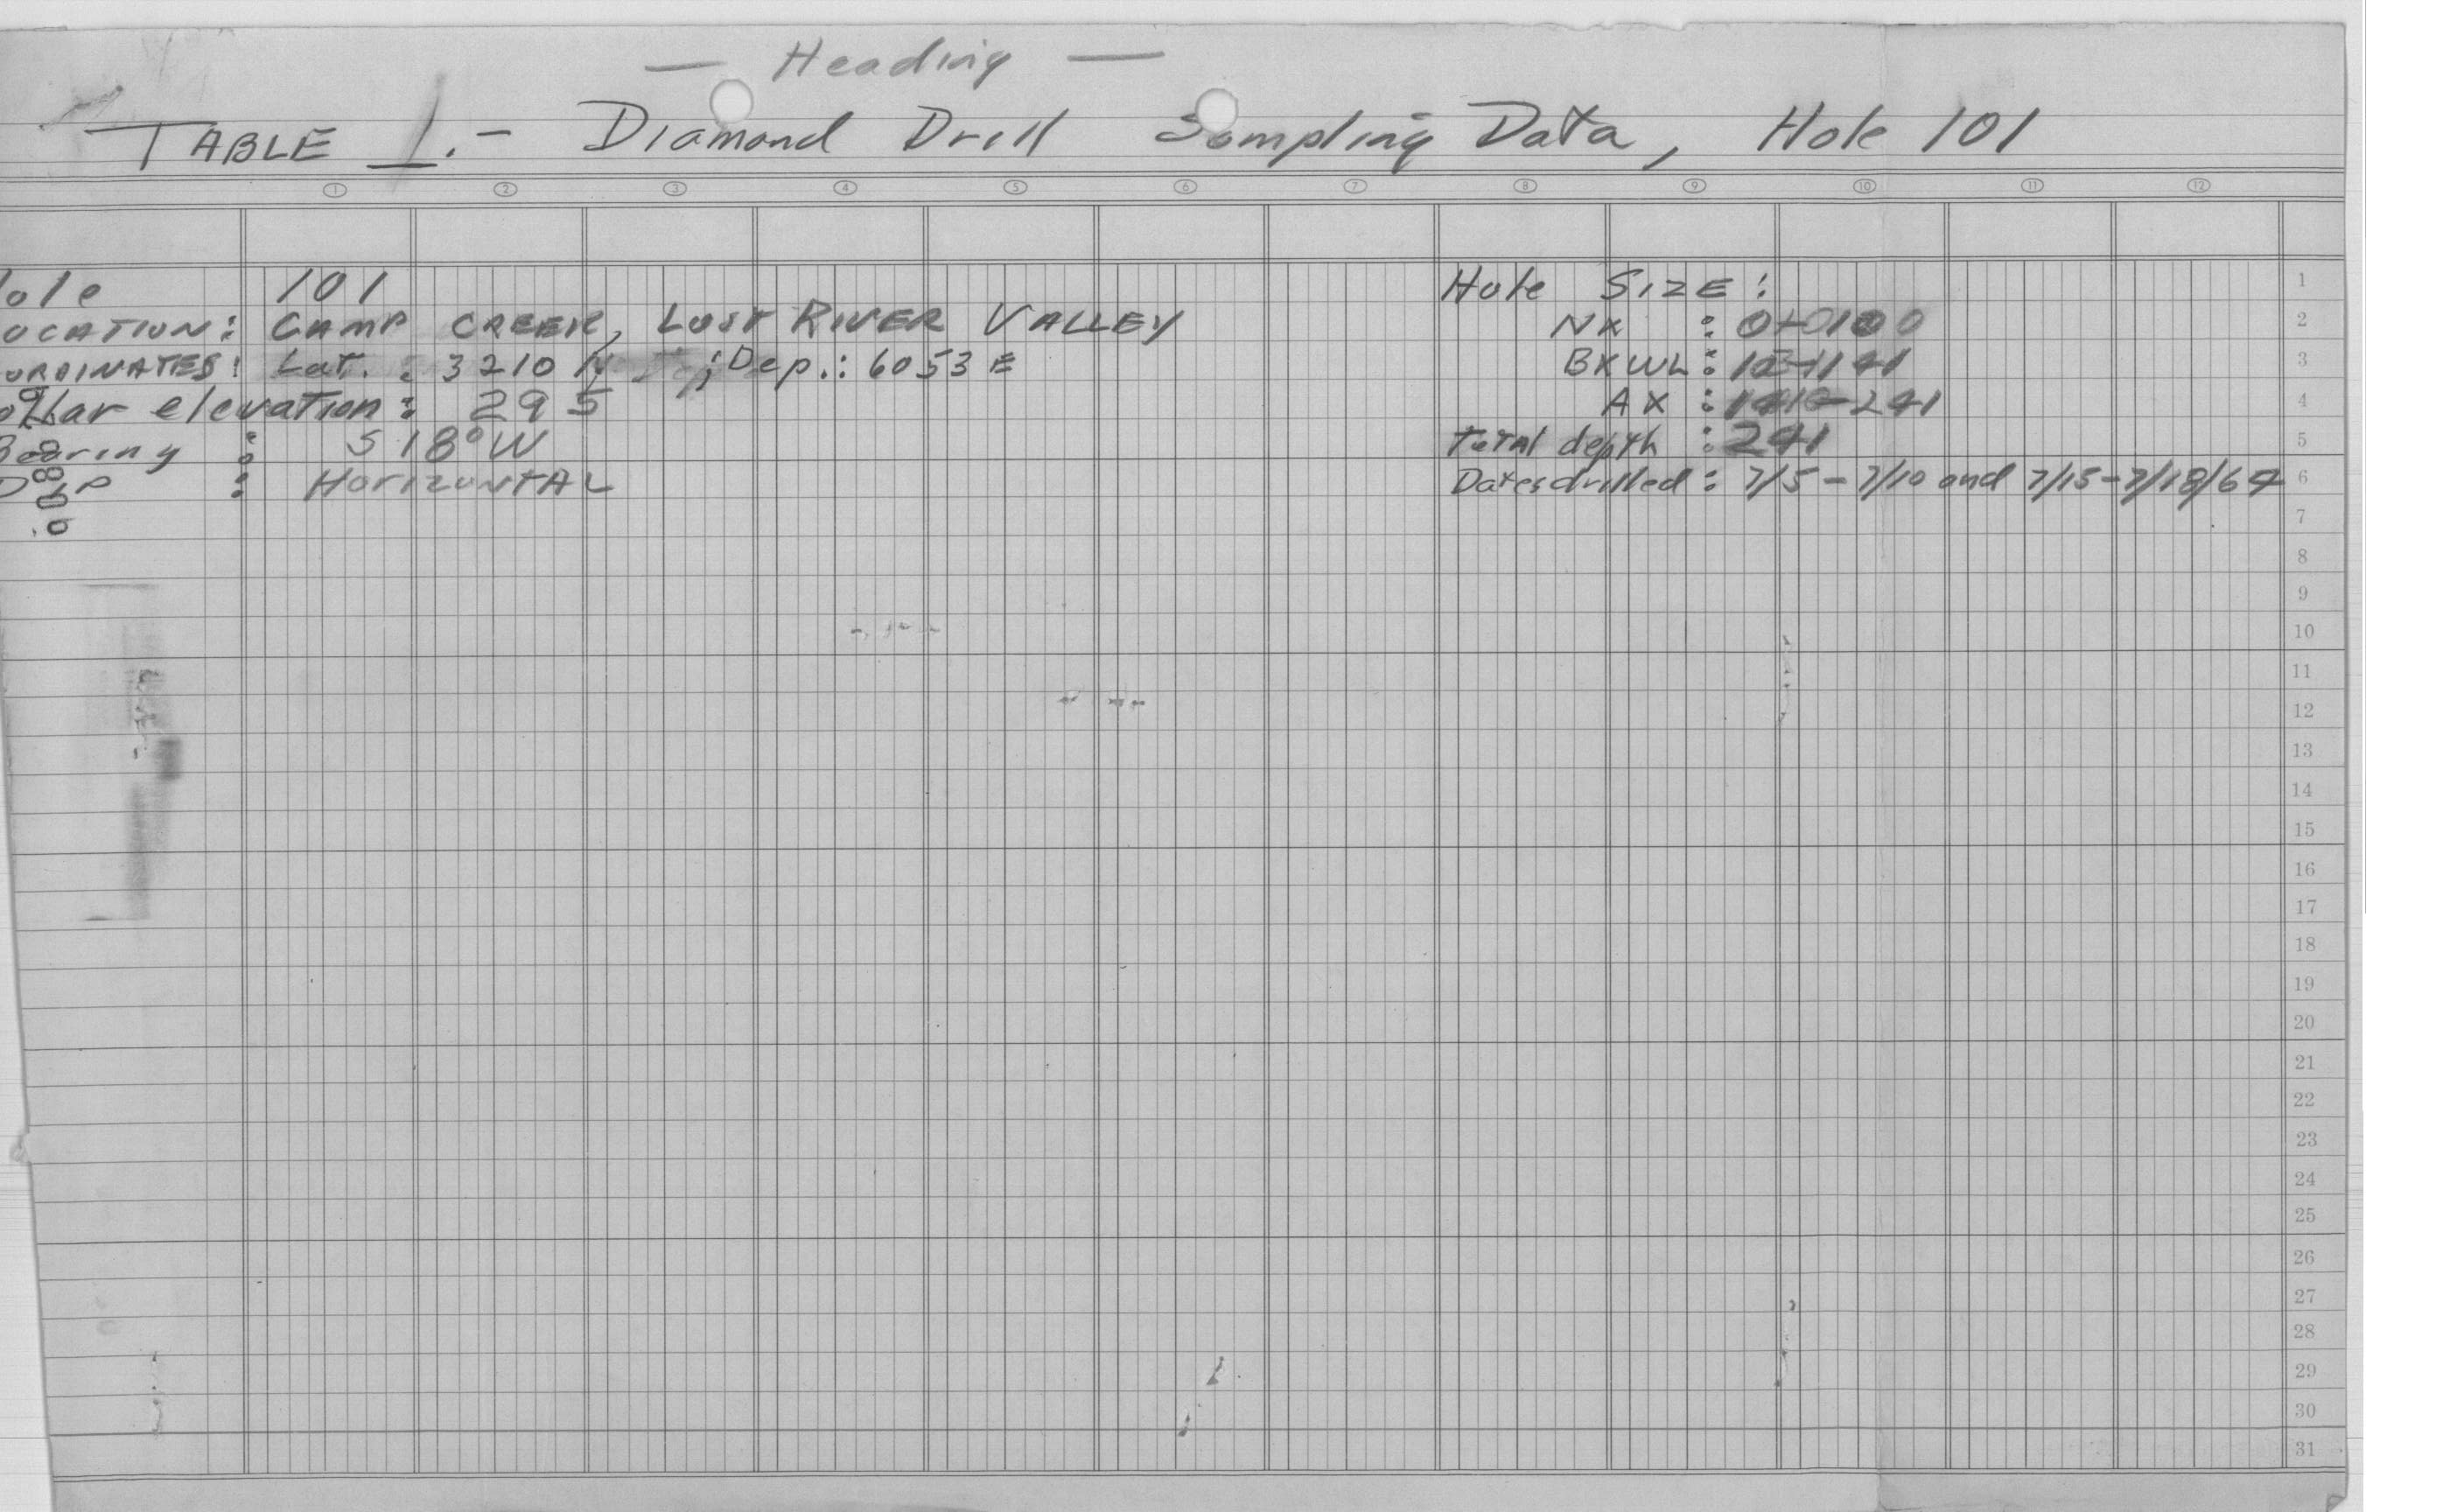 — Heading —
TABLE 1.- Diamond Drill Sampling Data, Hole 101
1 2 3 4 5 6 7 8 9 10 11 12
ole 101
OCATION: CAMP CREEK, LOST RIVER VALLEY
ORDINATES: Lat. : 3210 N ; Dep.: 6053 E
ollar elevation: 295
Bearing : S 18° W
Dip : HORIZONTAL
Hole SIZE:
NX :
BXWL:
AX : -241
Total depth : 241
Dates drilled: 7/5 - 7/10 and 7/15-7/18/64
1
2
3
4
5
6
7
8
9
10
11
12
13
14
15
16
17
18
19
20
21
22
23
24
25
26
27
28
29
30
31